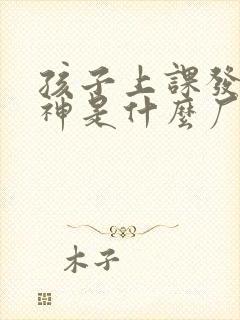 孩子上課發
神是什麼厂
木子